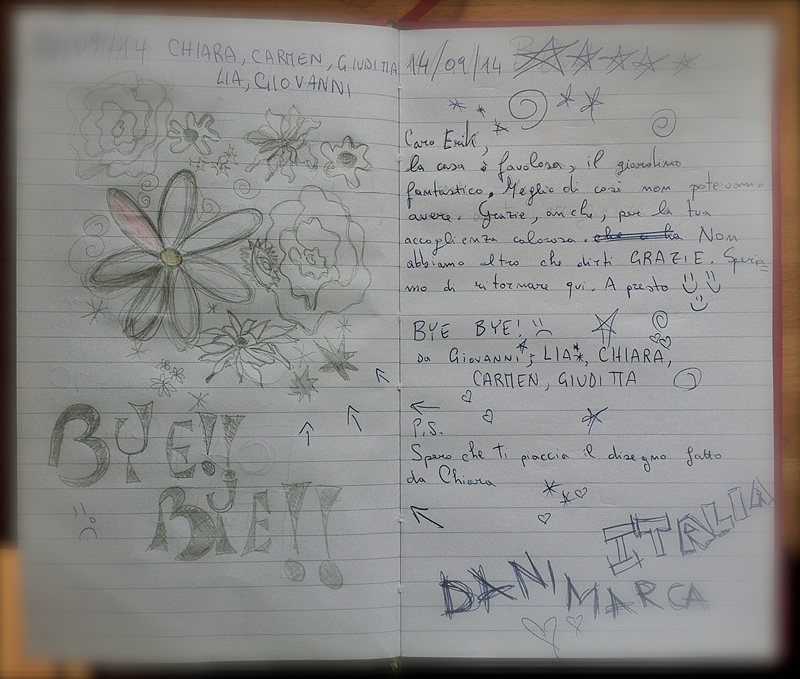 /09/14 CHIARA, CARMEN, GIUDITTA
LIA, GIOVANNI
BYE!!
BYE!!
14/09/14
Caro Erik,
la casa è favolosa, il giardino
fantastico. Meglio di così non potevamo
avere. Grazie, anche, per la tua
accoglienza calorosa. Non
abbiamo altro che dirti GRAZIE. Speria=
mo di ritornare qui. A presto
BYE BYE!
DA GIOVANNI, LIA, CHIARA,
CARMEN, GIUDITTA
P.S.
Spero che ti piaccia il disegno fatto
da Chiara
ITALIA
DANIMARCA